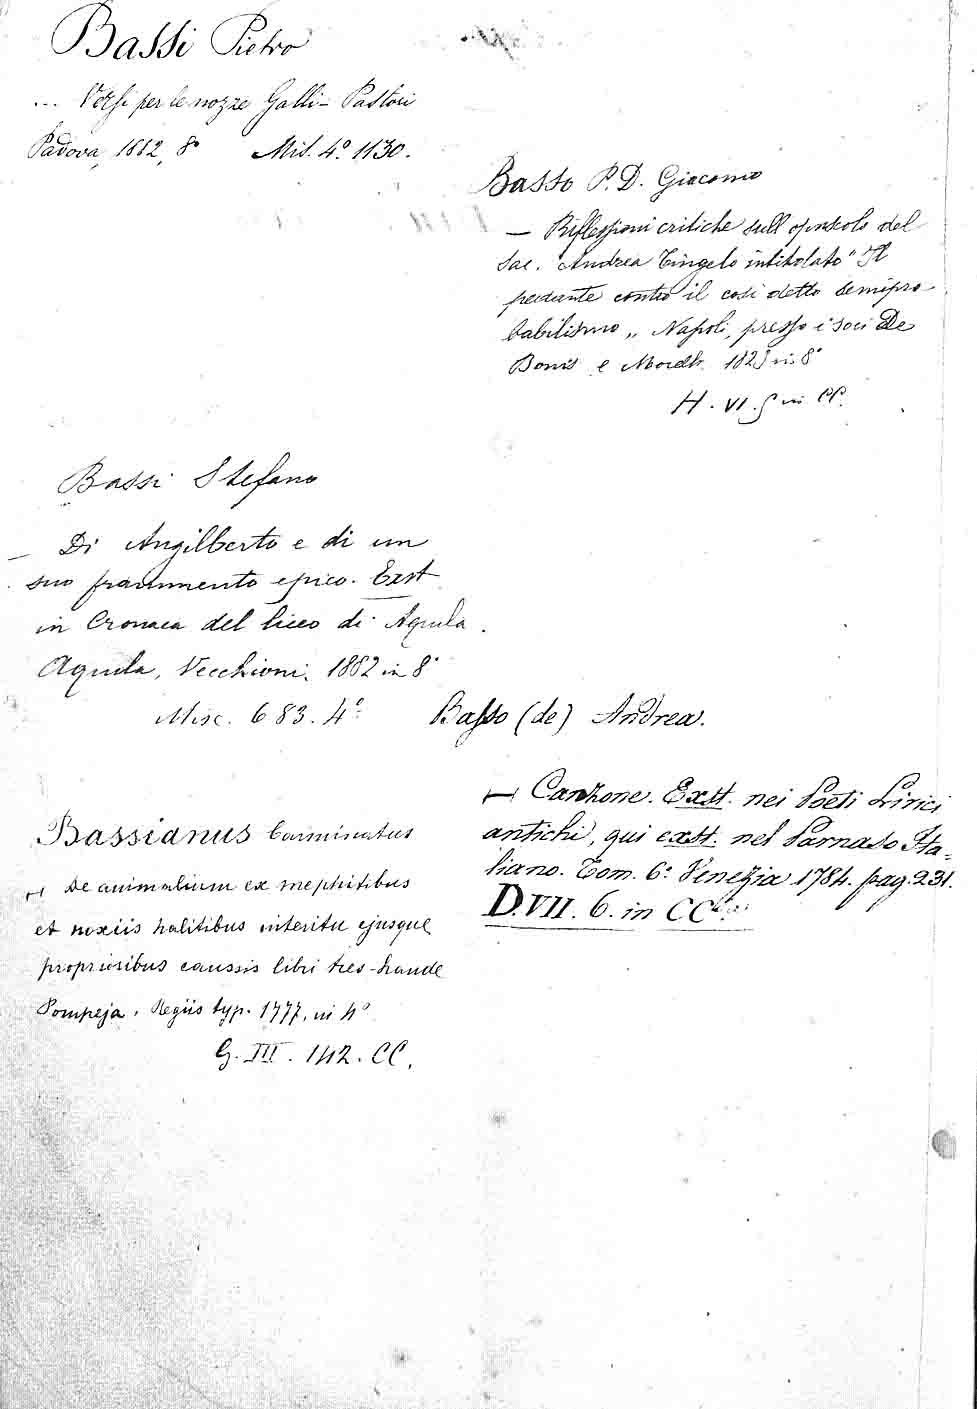 Bassi Pietro
... Versi per le nozze Galli - Pastori
Padova, 1882, 8° Mis. 4.° 1130.
Bassi Stefano
— Di Angilberto e di un
suo frammento epico. Exst
in Cronaca del liceo di Aquila.
Aquila, Vecchioni, 1882 in 8°
Misc. 683. 4°
Bassianus Carminatus
— De animalium ex mephitibus
et noxiis halitibus interitu ejusque
proprioribus caussis libri tres - Laude
Pompeja, Regiis typ. 1777, in 4°
G. III. 142. CC.
Basso P. D. Giacomo
— Riflessioni critiche sull opuscolo del
sac. Andrea intitolato "Il
pedante contro il così detto semipro
babilismo „ Napoli, presso i soci De
Bonis e in 8°
H. VI. in CC.
Basso (de) Andrea.
— Canzone. Exst. nei Poeti Lirici
antichi, qui exst. nel Parnaso Ita=
liano. Tom. 6° Venezia 1784. pag. 231.
D. VII. 6. in CC